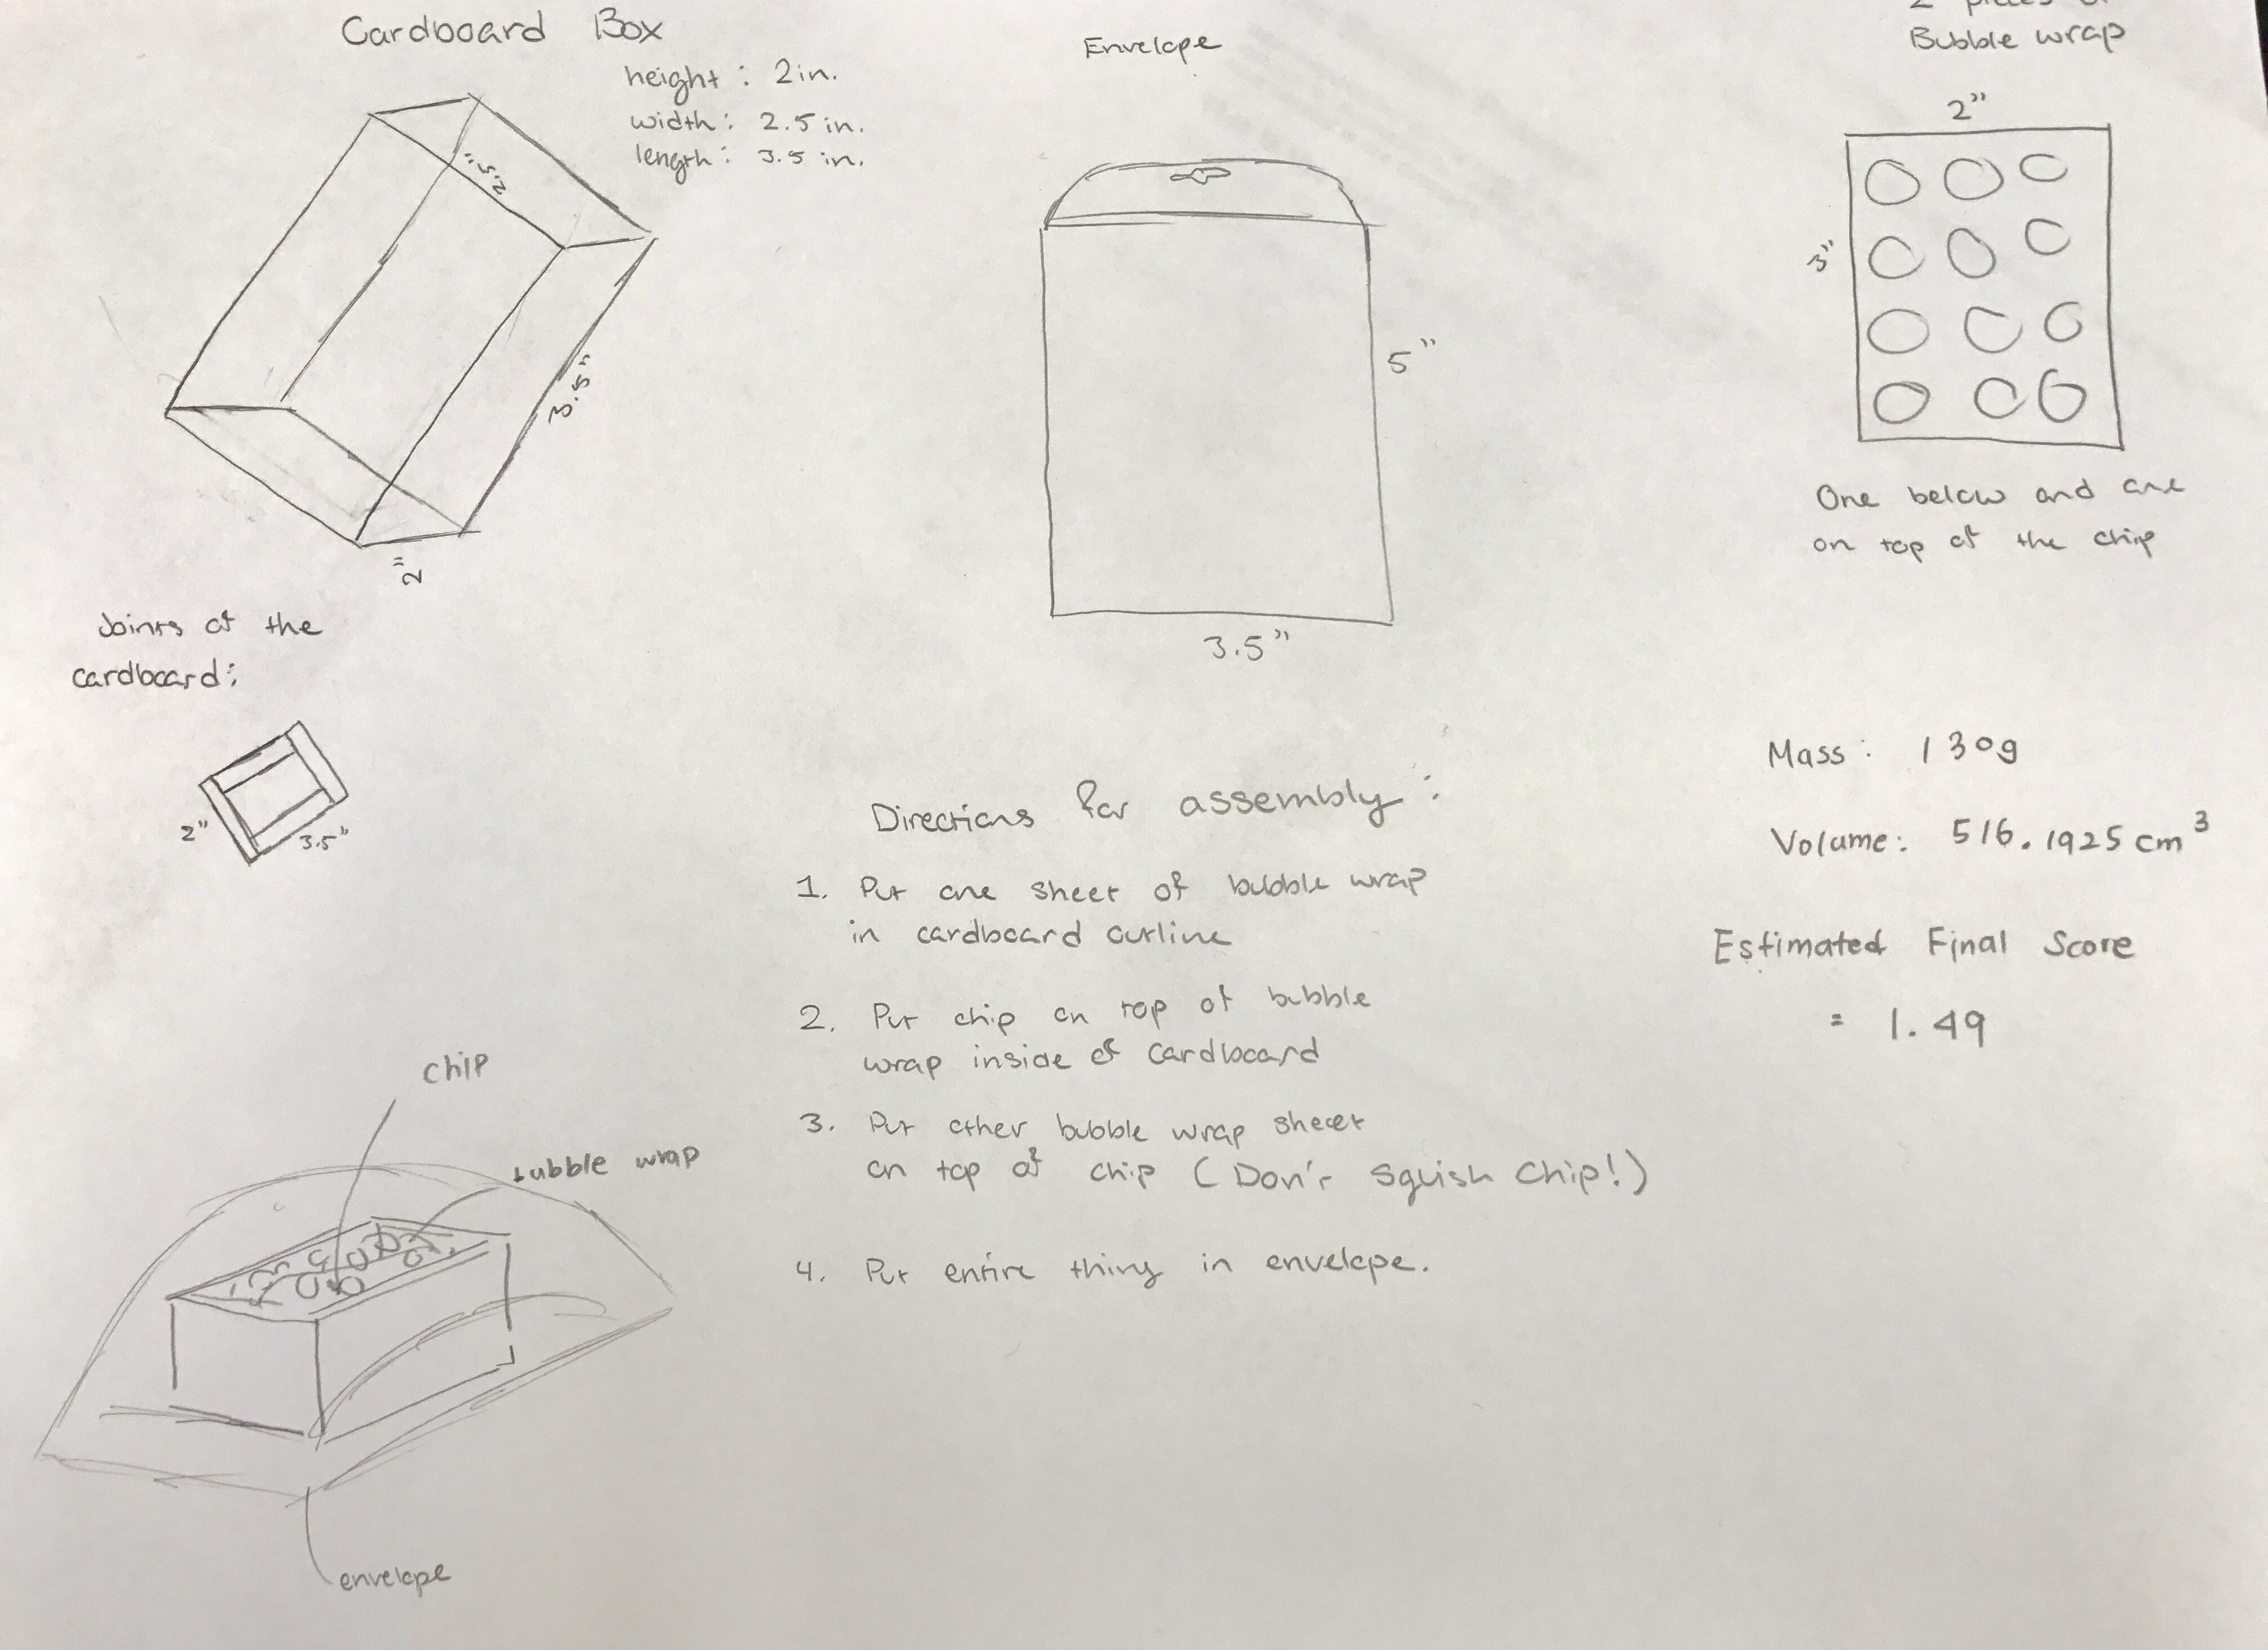 Cardboard Box
height: 2in.
width: 2.5 in.
length: 3.5 in.
2.5"
3.5"
2"
Joints of the
cardboard:
2"
3.5"
Envelope
5"
3.5"
2 pieces of
Bubble wrap
2"
3"
One below and one
on top of the chip
Mass: 130g
Volume: 516.1925 cm³
Estimated Final Score
= 1.49
Directions for assembly:
1. Put one sheet of bubble wrap
in cardboard outline
2. Put chip on top of bubble
wrap inside of cardboard
3. Put other bubble wrap sheet
on top of chip (Don't squish chip!)
4. Put entire thing in envelope.
chip
bubble wrap
envelope